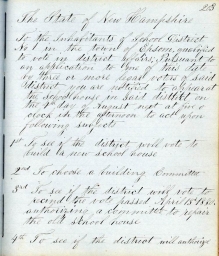 213
The State of New Hampshire
To the Inhabitants of School District
No 1 in the town of Epsom, qualified
to vote in district affairs, Pursuant to
an application to One of this dist
by three or more legal voters of said
District you are notified to appear at
the school house in said district on
the 9th day of August next at five o
clock in the afternoon to act upon
following subject
1st To see if the district will vote to
build a new school house
2nd To choose a building Committee
3rd To see if the district will vote to
recind the vote passed April 13th 1880
authorizing a committee to repair
the old school house
4th To see if the district will authorize